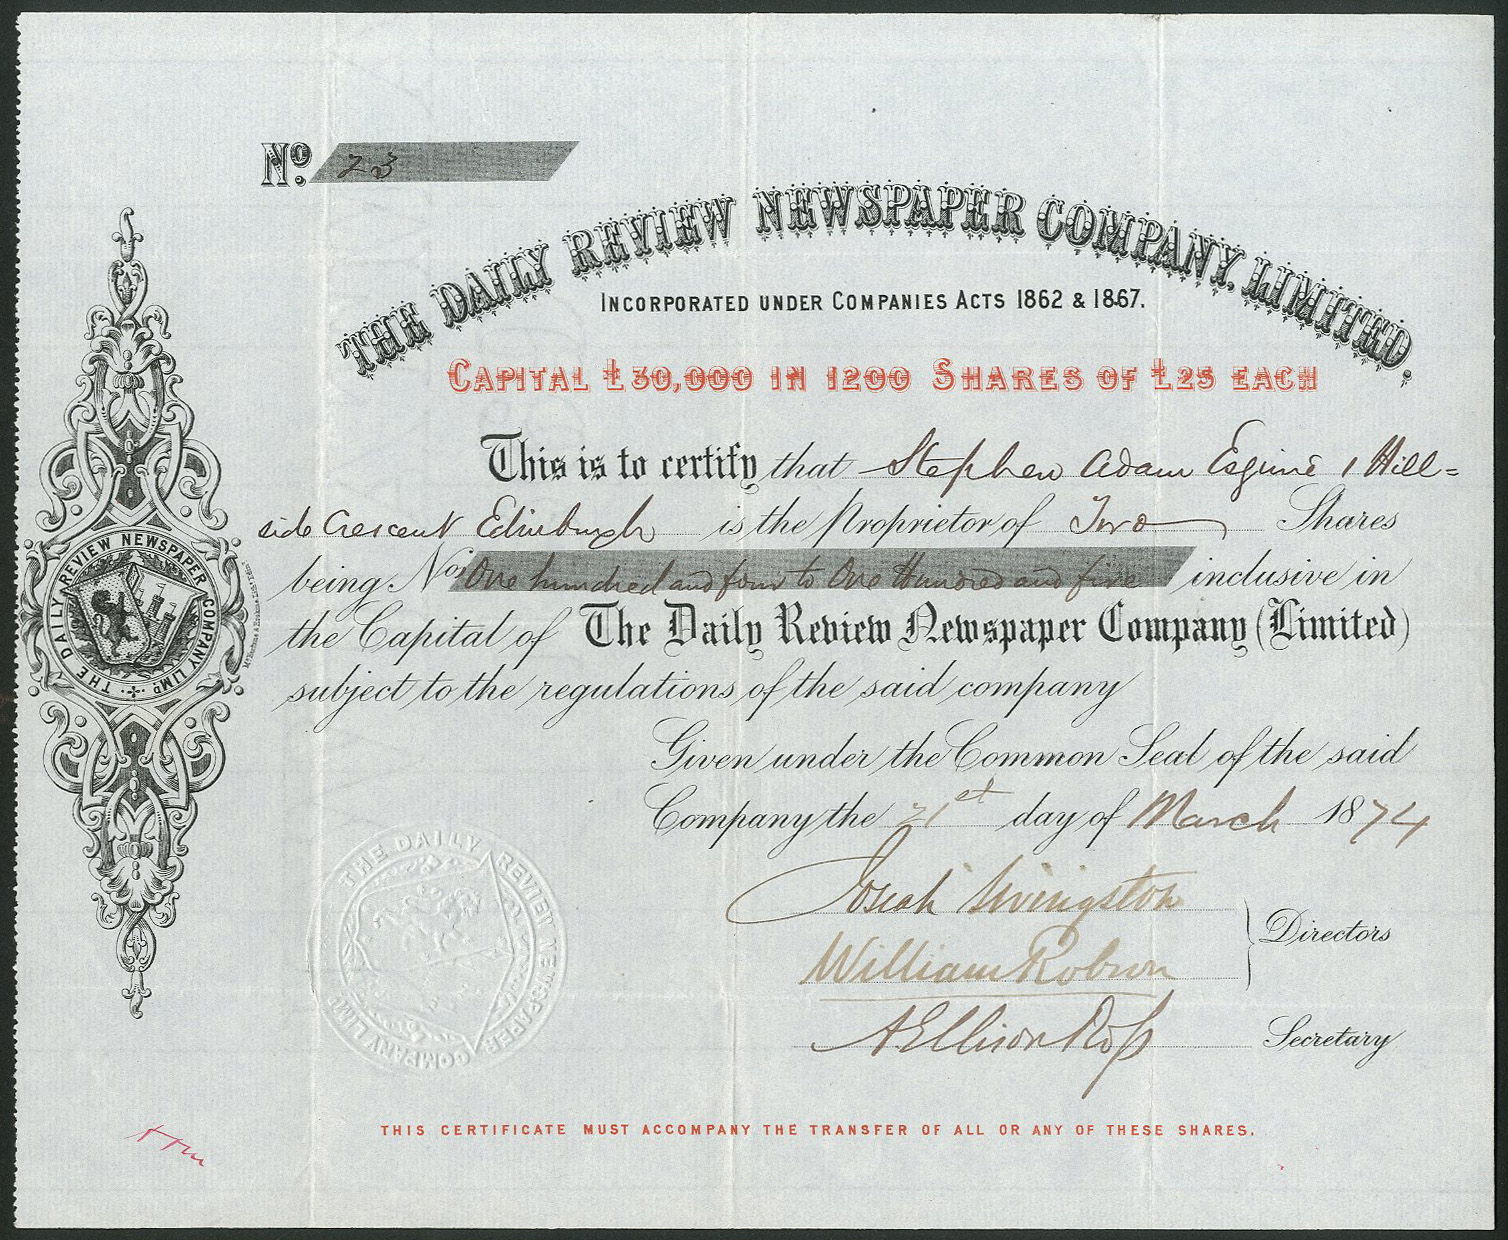 No. 23
THE DAILY REVIEW NEWSPAPER COMPANY, LIMITED.
INCORPORATED UNDER COMPANIES ACTS 1862 & 1867.
CAPITAL £30,000 IN 1200 SHARES OF £25 EACH
This is to certify that Stephen Adam Esquire 1 Hill=
side Crescent Edinburgh is the Proprietor of Two Shares
being Nos. One hundred and four to One Hundred and five inclusive in
the Capital of The Daily Review Newspaper Company (Limited)
subject to the regulations of the said company
Given under the Common Seal of the said
Company the 21st day of March 1874
Josiah Livingston
William Robson
Directors
A Ellison Ross
Secretary
THIS CERTIFICATE MUST ACCOMPANY THE TRANSFER OF ALL OR ANY OF THESE SHARES.
THE DAILY REVIEW NEWSPAPER COMPANY LIMD
THE DAILY REVIEW NEWSPAPER COMPANY LIMD